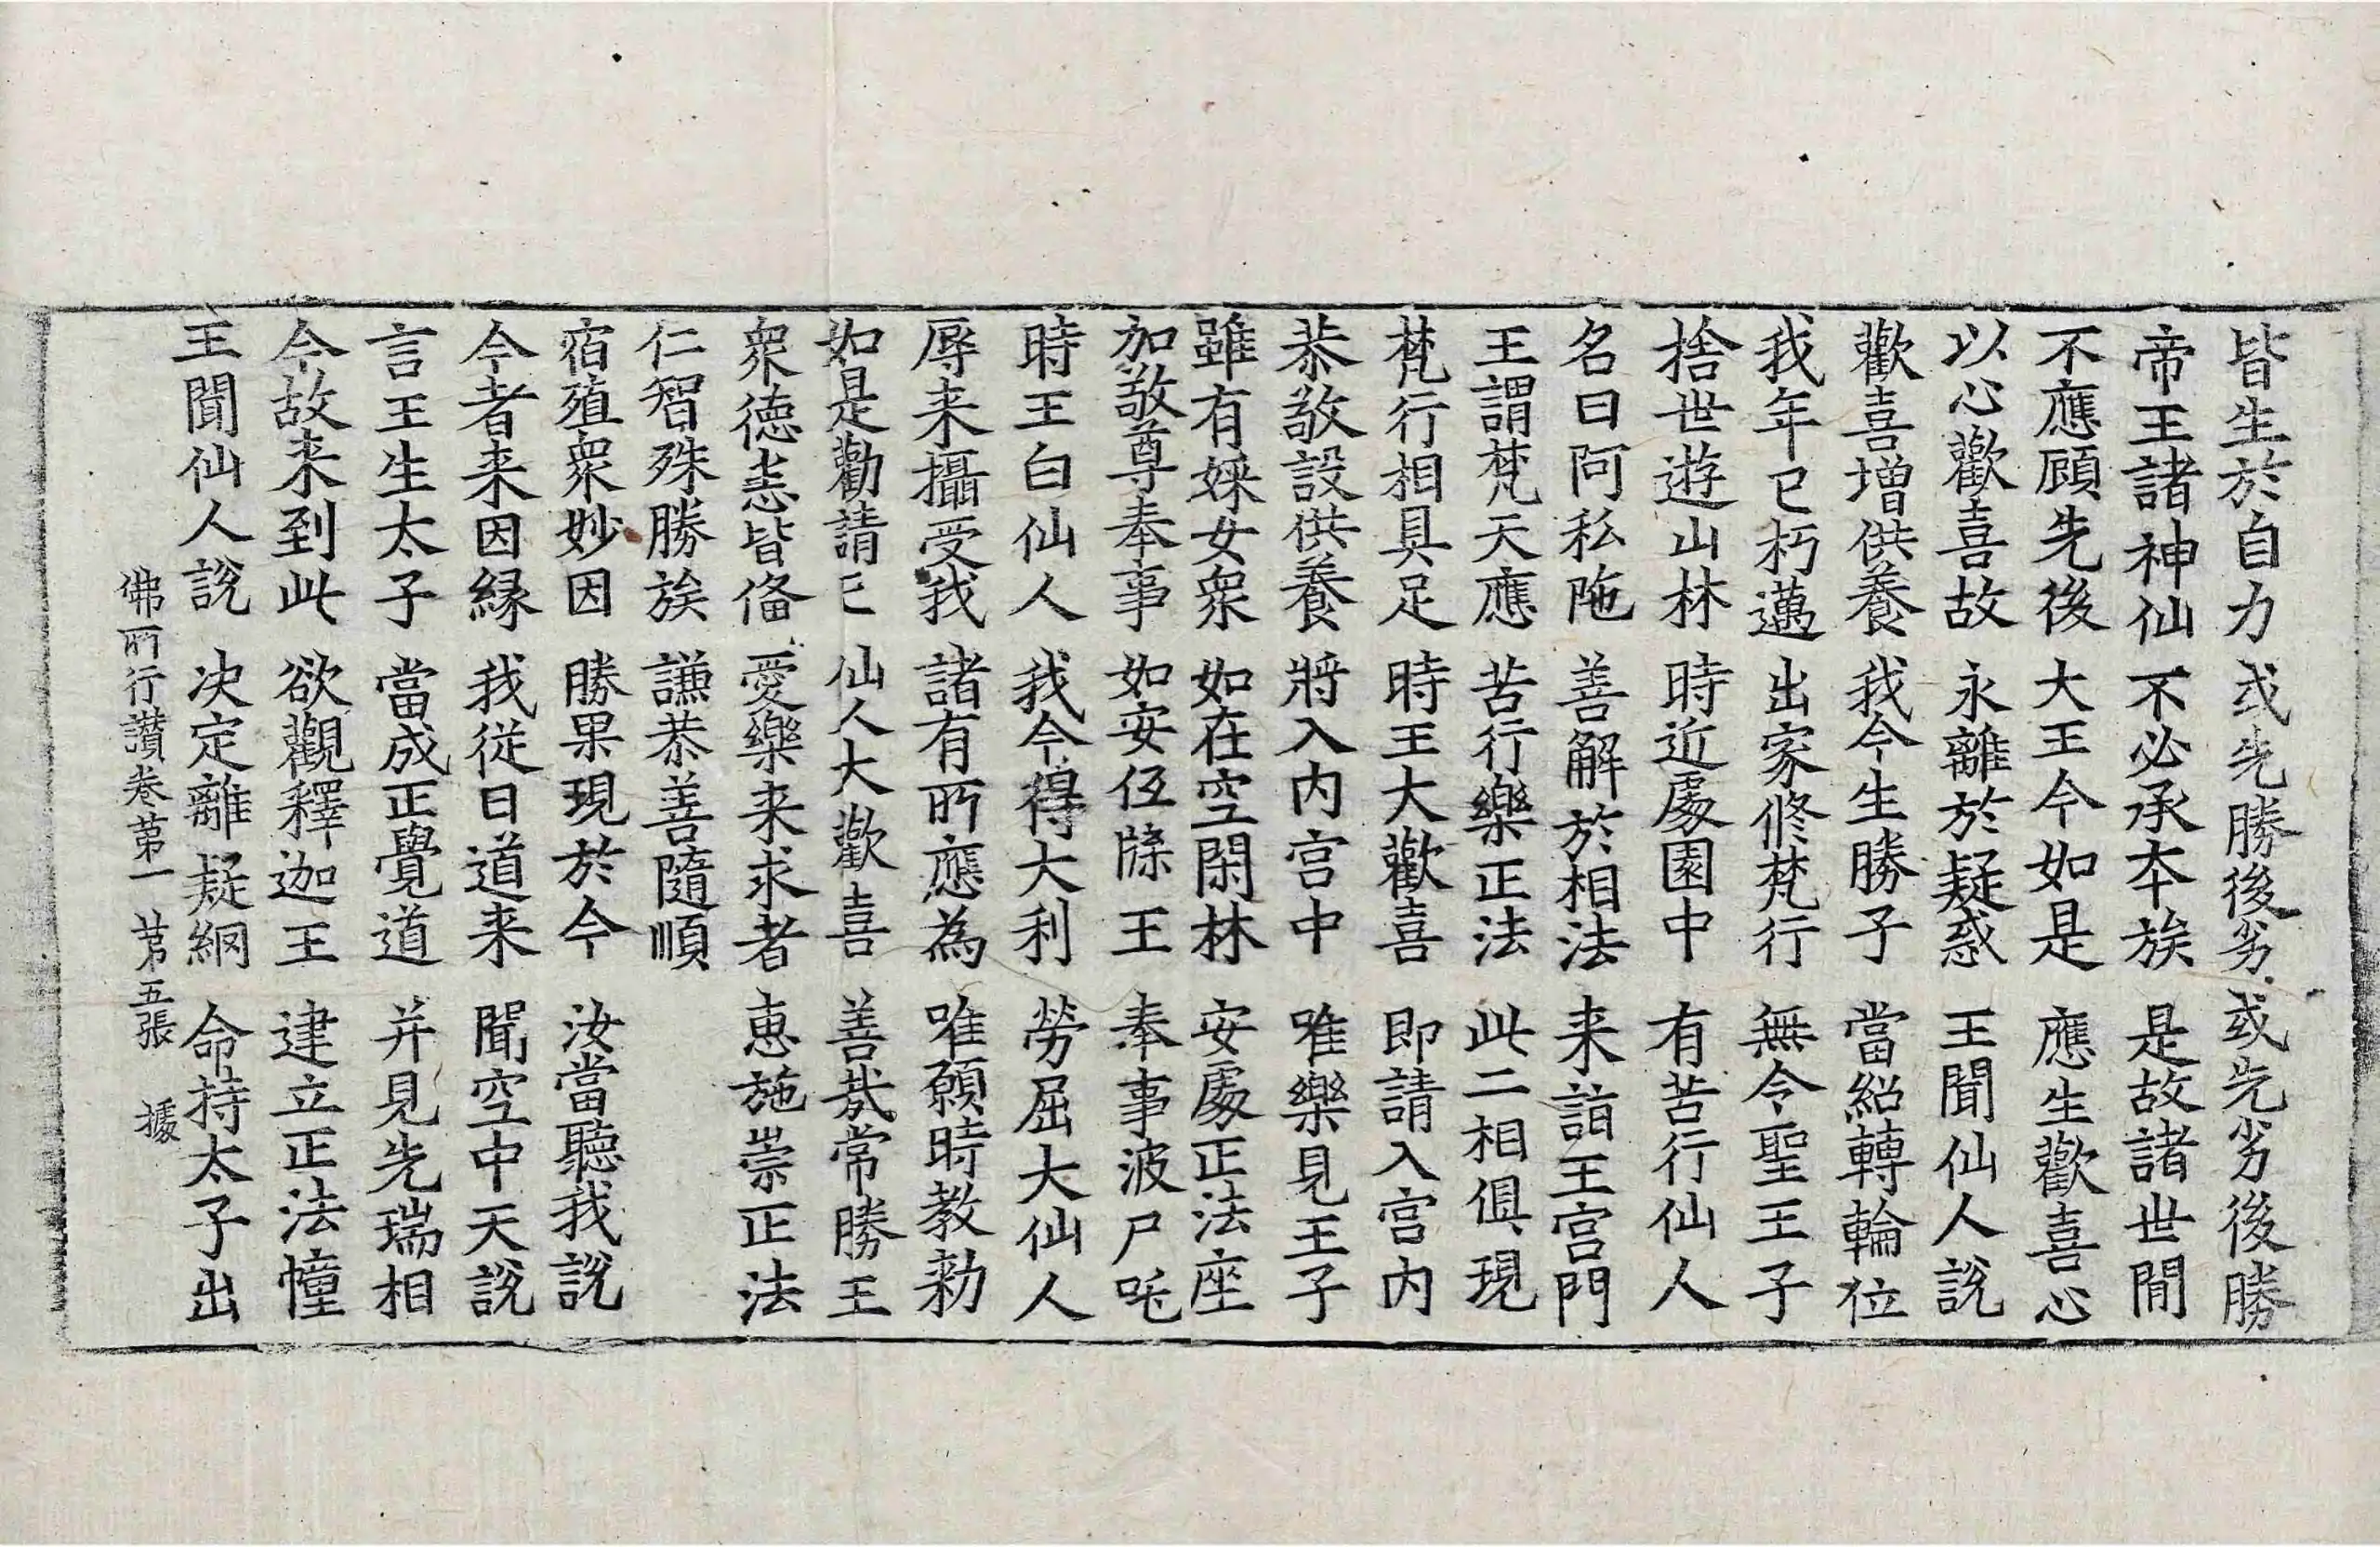 皆生於自力 或先勝後劣 或先劣後勝
帝王諸神仙 不必承本族 是故諸世間
不應顧先後 大王今如是 應生歡喜心
以心歡喜故 永離於疑惑 王聞仙人說
歡喜增供養 我今生勝子 當紹轉輪位
我年已朽邁 出家修梵行 無令聖王子
捨世遊山林 時近處園中 有苦行仙人
名曰阿私陁 善解於相法 来詣王宮門
王謂梵天應 苦行樂正法 此二相俱現
梵行相具足 時王大歡喜 即請入宮內
恭敬設供養 將入內宮中 唯樂見王子
雖有婇女衆 如在空閑林 安處正法座
加敬尊奉事 如安伍牒王 奉事波尸吒
時王白仙人 我今得大利 勞屈大仙人
辱来攝受我 諸有所應為 唯願時教勑
如是勸請已 仙人大歡喜 善哉常勝王
衆德悉皆俻 愛樂来求者 惠施崇正法
仁智殊勝族 謙恭善隨順
宿殖衆妙因 勝果現於今 汝當聽我說
今者来因緣 我從日道来 聞空中天說
言王生太子 當成正覺道 并見先瑞相
今故来到此 欲觀釋迦王 建立正法幢
王聞仙人說 决定離疑網 命持太子出
佛所行讚卷第一 第五張 據